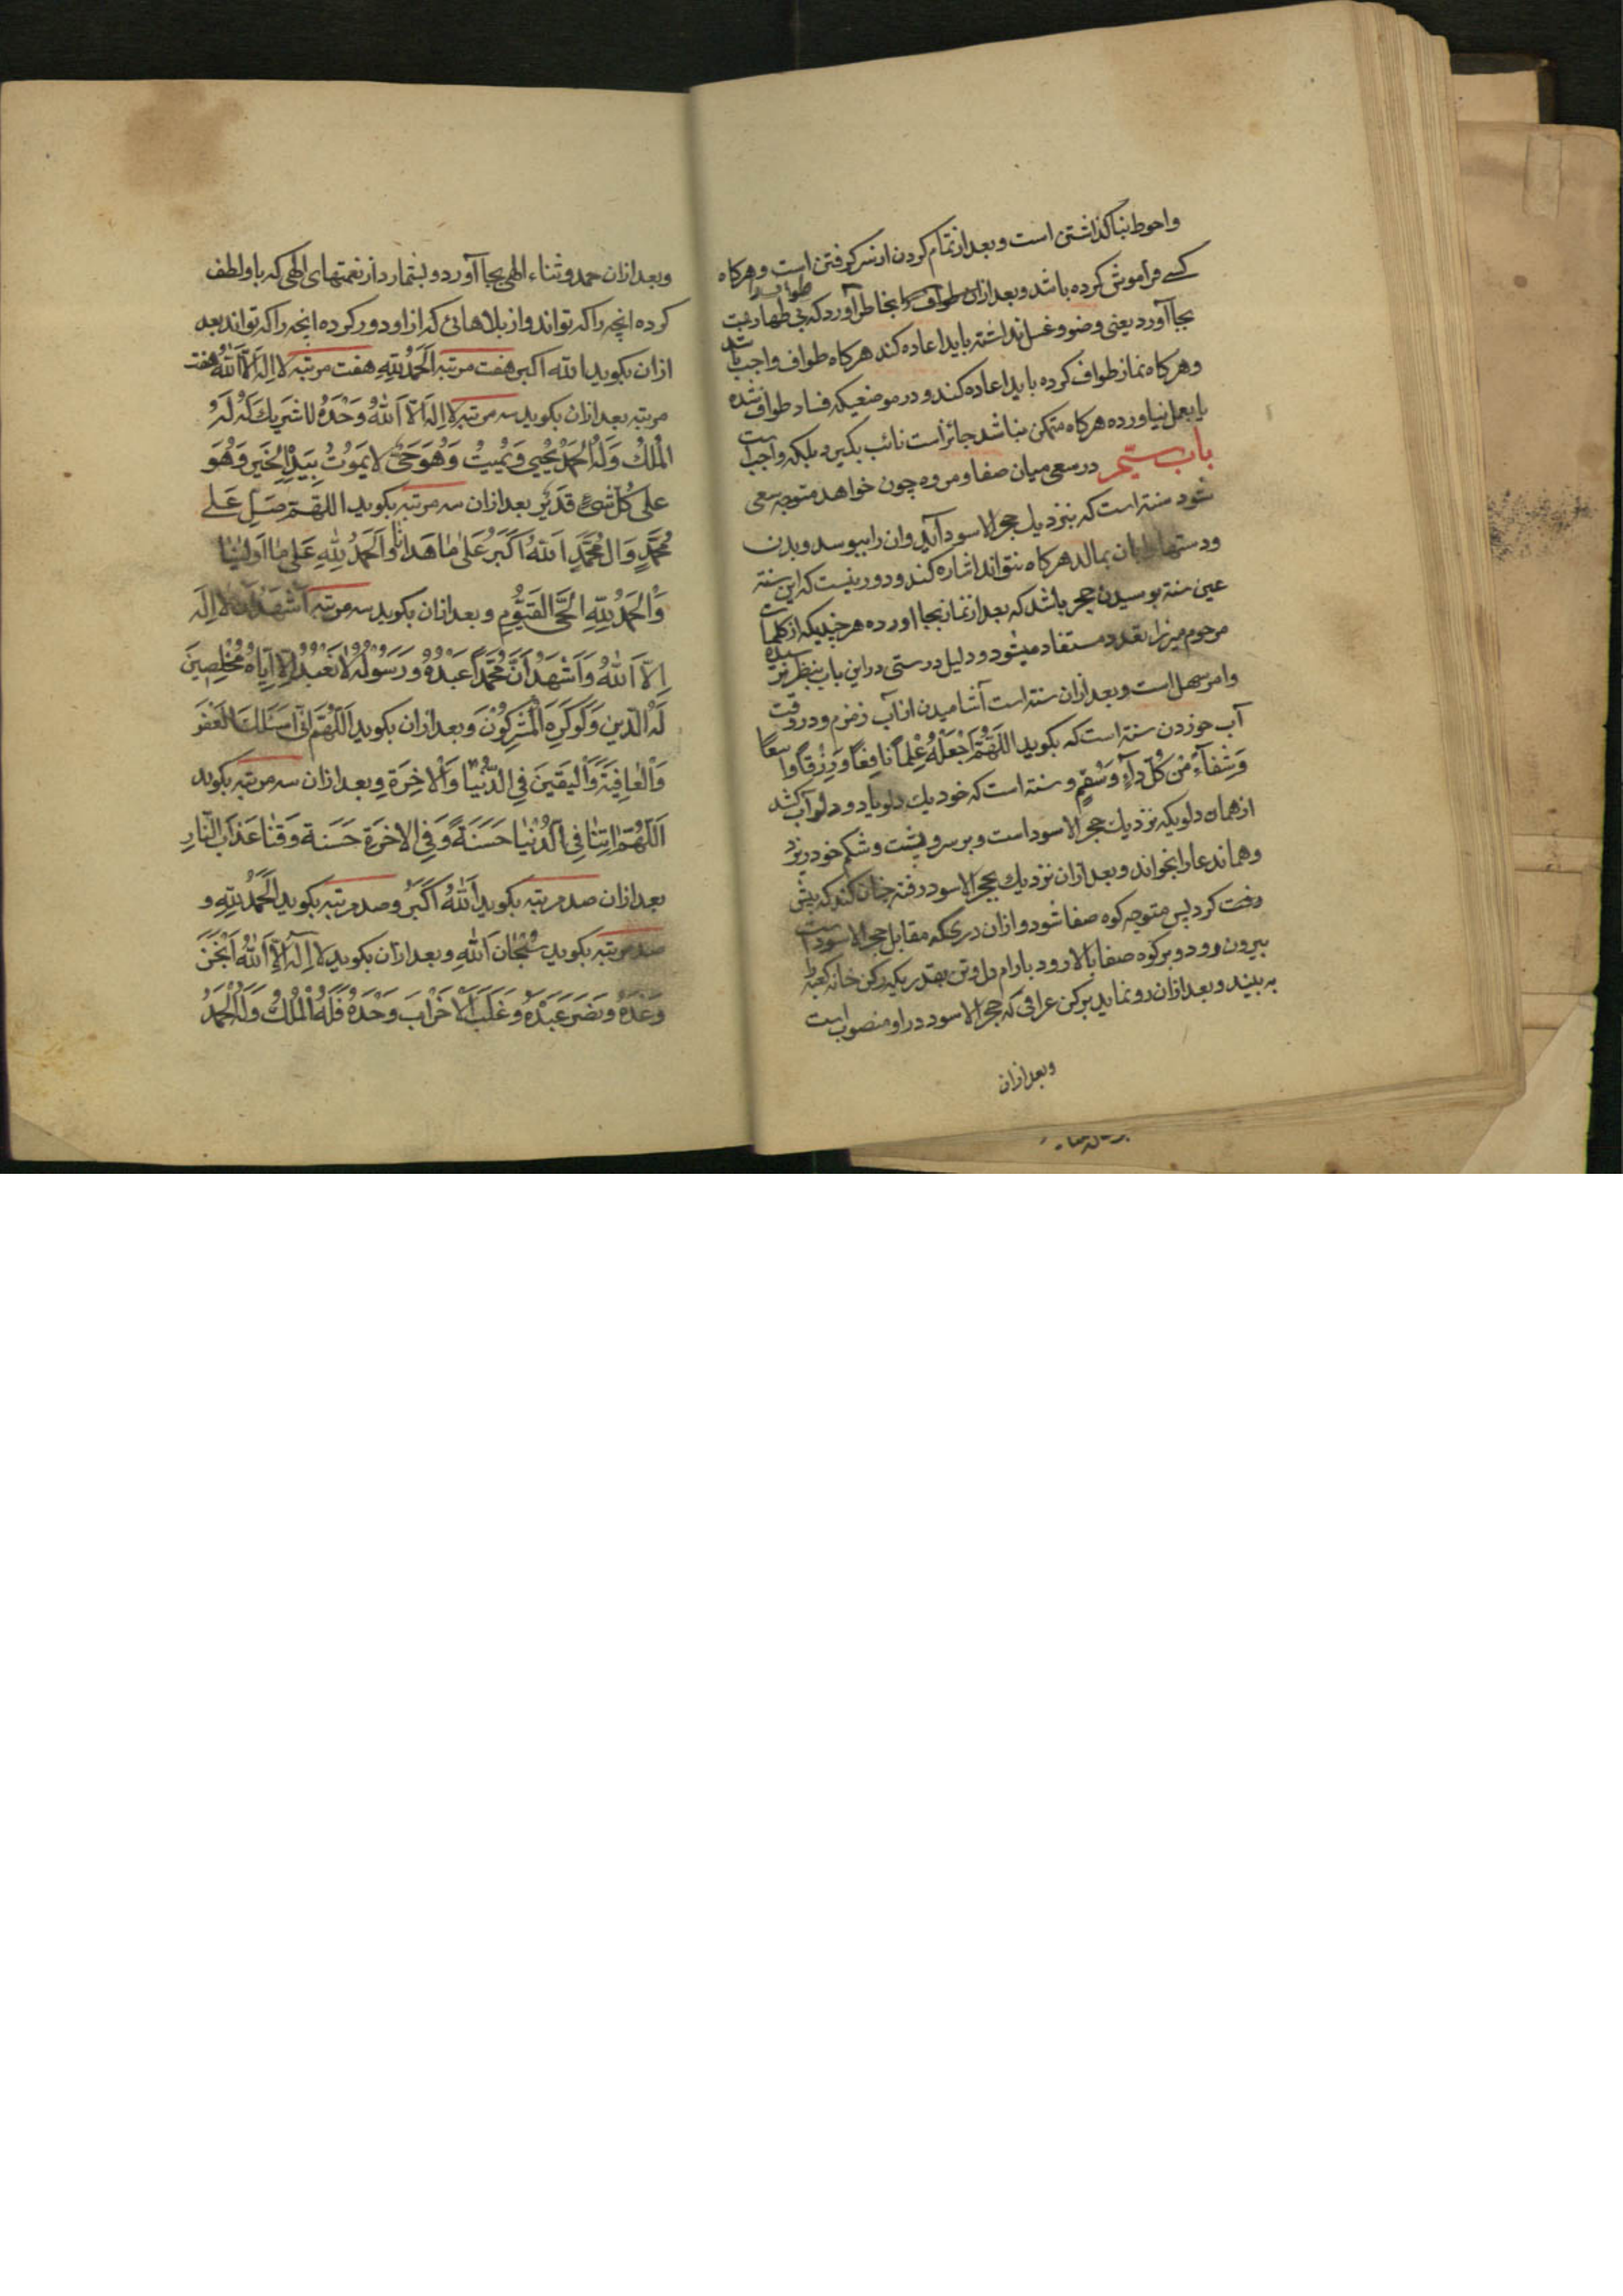 واحوط بنا کذاشتن است و بعد از تمام کردن از سر کرفتن است و هرکاه
کسے فراموش کرده باشد و بعد از ان طواف را بخاطر آورد که بی طهارت
بجا آورد یعنی وضو و غسل نداشته باید اعاده کند هرکاه طواف واجب باشد
و هرکاه نماز طواف کرده باید اعاده کند و در موضعیکه فساد طواف شده
یا بعمل نیاورده هرکاه متمکن نباشد جائز است نائب بکیرد بلکه واجب است
باب سیم در سعی میان صفا و مروه چون خواهد متوجه سعی
شود سنة است که بنزدیك حجر الاسود آید و ان را ببوسد و بدن
و دستها را بان بمالد هرکاه نتواند اشاره کند و دور نیست که این سنة
عین سنة بوسیدن حجر باشد که بعد از نماز بجا اورده هرچندیکه از کلمات
مرحوم میرزا تعدد مستفاد میشود و دلیل درستی در این باب بنظر نرسیده
و امر سهل است و بعد از ان سنة است آشامیدن از آب زمزم و در وقت
آب خوردن سنة است که بکوید اللَّهُمَّ اجْعَلْهُ عِلْماً نَافِعاً وَ رِزْقاً وَاسِعاً
وَ شِفَآءً مِنْ كُلِّ دَآءٍ وَ سُقْمٍ و سنة است که خود یك دلو یا دو دلو آب کشد
از همان دلویکه نزدیك حجر الاسود است و بر سر و پشت و شکم خود ریزد
و همان دعا را بخواند و بعد از ان نزدیك بحجر الاسود رفته چنان کند که پیش
رفت کرد پس متوجه کوه صفا شود و از ان دریکه مقابل حجر الاسود است
بیرون رود و بر کوه صفا بالا رود بارام دل و تن بقدریکه رکن خانه کعبه را
به بیند و بعد از ان رو نماید برکن عراقی که حجر الاسود در او منصوب است
و بعد از ان
و بعد از ان حمد و ثناء الهی بجا آورد و بشمارد از نعمتهای الهی که باو لطف
کرده انچه را که تواند و از بلاهائی که از او دور کرده انچه را که تواند بعد
از ان بکوید الله اکبر هفت مرتبه اَلْحَمْدُ لِلّٰهِ هفت مرتبه لا اِلٰهَ اِلَّا اللهُ هفت
مرتبه بعد از ان بکوید سه مرتبه لا اِلٰهَ اِلَّا اللهُ وَحْدَهُ لا شَرِيكَ لَهُ لَهُ
الْمُلْكُ وَ لَهُ الْحَمْدُ يُحْيِي وَ يُمِيتُ وَ هُوَ حَيٌّ لا يَمُوتُ بِيَدِهِ الْخَيْرُ وَ هُوَ
عَلٰى كُلِّ شَيْءٍ قَدِيْرٌ بعد از ان سه مرتبه بکوید اللهُمَّ صَلِّ عَلٰى
مُحَمَّدٍ وَ اٰلِ مُحَمَّدٍ اَللهُ اَكْبَرُ عَلٰى مٰا هَدٰانٰا وَ اَلْحَمْدُ لِلّٰهِ عَلٰى مٰا اَوْلٰيٰنٰا
وَ الْحَمْدُ لِلّٰهِ الْحَيِّ الْقَيُّوْمِ و بعد از ان بکوید سه مرتبه اَشْهَدُ اَنْ لا اِلٰهَ
اِلَّا اللهُ وَ اَشْهَدُ اَنَّ مُحَمَّداً عَبْدُهُ وَ رَسُوْلُهُ لا نَعْبُدُ اِلَّا اِيّٰاهُ مُخْلِصِيْنَ
لَهُ الدِّيْنَ وَ لَوْ كَرِهَ الْمُشْرِكُوْنَ و بعد از ان بکوید اَللّٰهُمَّ اِنِّي اَسْئَلُكَ الْعَفْوَ
وَ الْعٰافِيَةَ وَ الْيَقِيْنَ فِي الدُّنْيٰا وَ الْاٰخِرَةِ و بعد از ان سه مرتبه بکوید
اَللّٰهُمَّ اٰتِنٰا فِي الدُّنْيٰا حَسَنَةً وَ فِي الْاٰخِرَةِ حَسَنَةً وَ قِنٰا عَذٰابَ النّٰارِ
بعد از ان صد مرتبه بکوید اَللهُ اَكْبَرُ و صد مرتبه بکوید اَلْحَمْدُ لِلّٰهِ و
صد مرتبه بکوید سُبْحٰانَ اللهِ و بعد از ان بکوید لا اِلٰهَ اِلَّا اللهُ اَنْجَزَ
وَعْدَهُ وَ نَصَرَ عَبْدَهُ وَ غَلَبَ الْاَحْزٰابَ وَحْدَهُ فَلَهُ الْمُلْكُ وَ لَهُ الْحَمْدُ